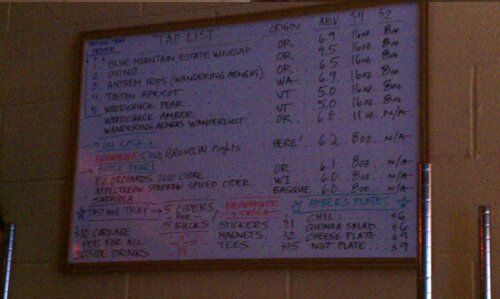 TASTING TRAY ORDER TAP LIST ORIGIN ABV $4 $2
1 BLUE MOUNTAIN ESTATE WINESAP OR 6.9 16oz 8oz
2 OVINO OR 4.5 16oz 8oz
3 ANTHEM HOPS (WANDERING AENGUS) OR 6.5 16oz 8oz
4 TIETON APRICOT WA 6.9 16oz 8oz
5 WOODCHUCK PEAR VT 5.0 16oz 8oz
WOODCHUCK AMBER VT 5.0 16oz 8oz
WANDERING AENGUS WANDERLUST OR 6.8 11oz N/A
ON CASK
BUSHWHACKER COLD BROOKLYN nights HERE! 6.2 8oz N/A
BOTTLE POURS
EZ ORCHARDS 2010 CIDRE OR 6.1 8oz N/A
APPELTREOW SPARROW SPICED CIDER WI 6.0 8oz N/A
SARASOLA BASQUE 6.0 8oz N/A
TASTING TRAY → 5 CIDERS FOR 5 BUCKS
$10 CORKAGE FEE FOR ALL OUTSIDE DRINKS
BUSHWHACKER SWAG
STICKERS $1
MAGNETS $2
TEES $15
AMBER'S PLATES
CHILI $6
QUINOA SALAD $6
CHEESE PLATE $9
NUT PLATE $9